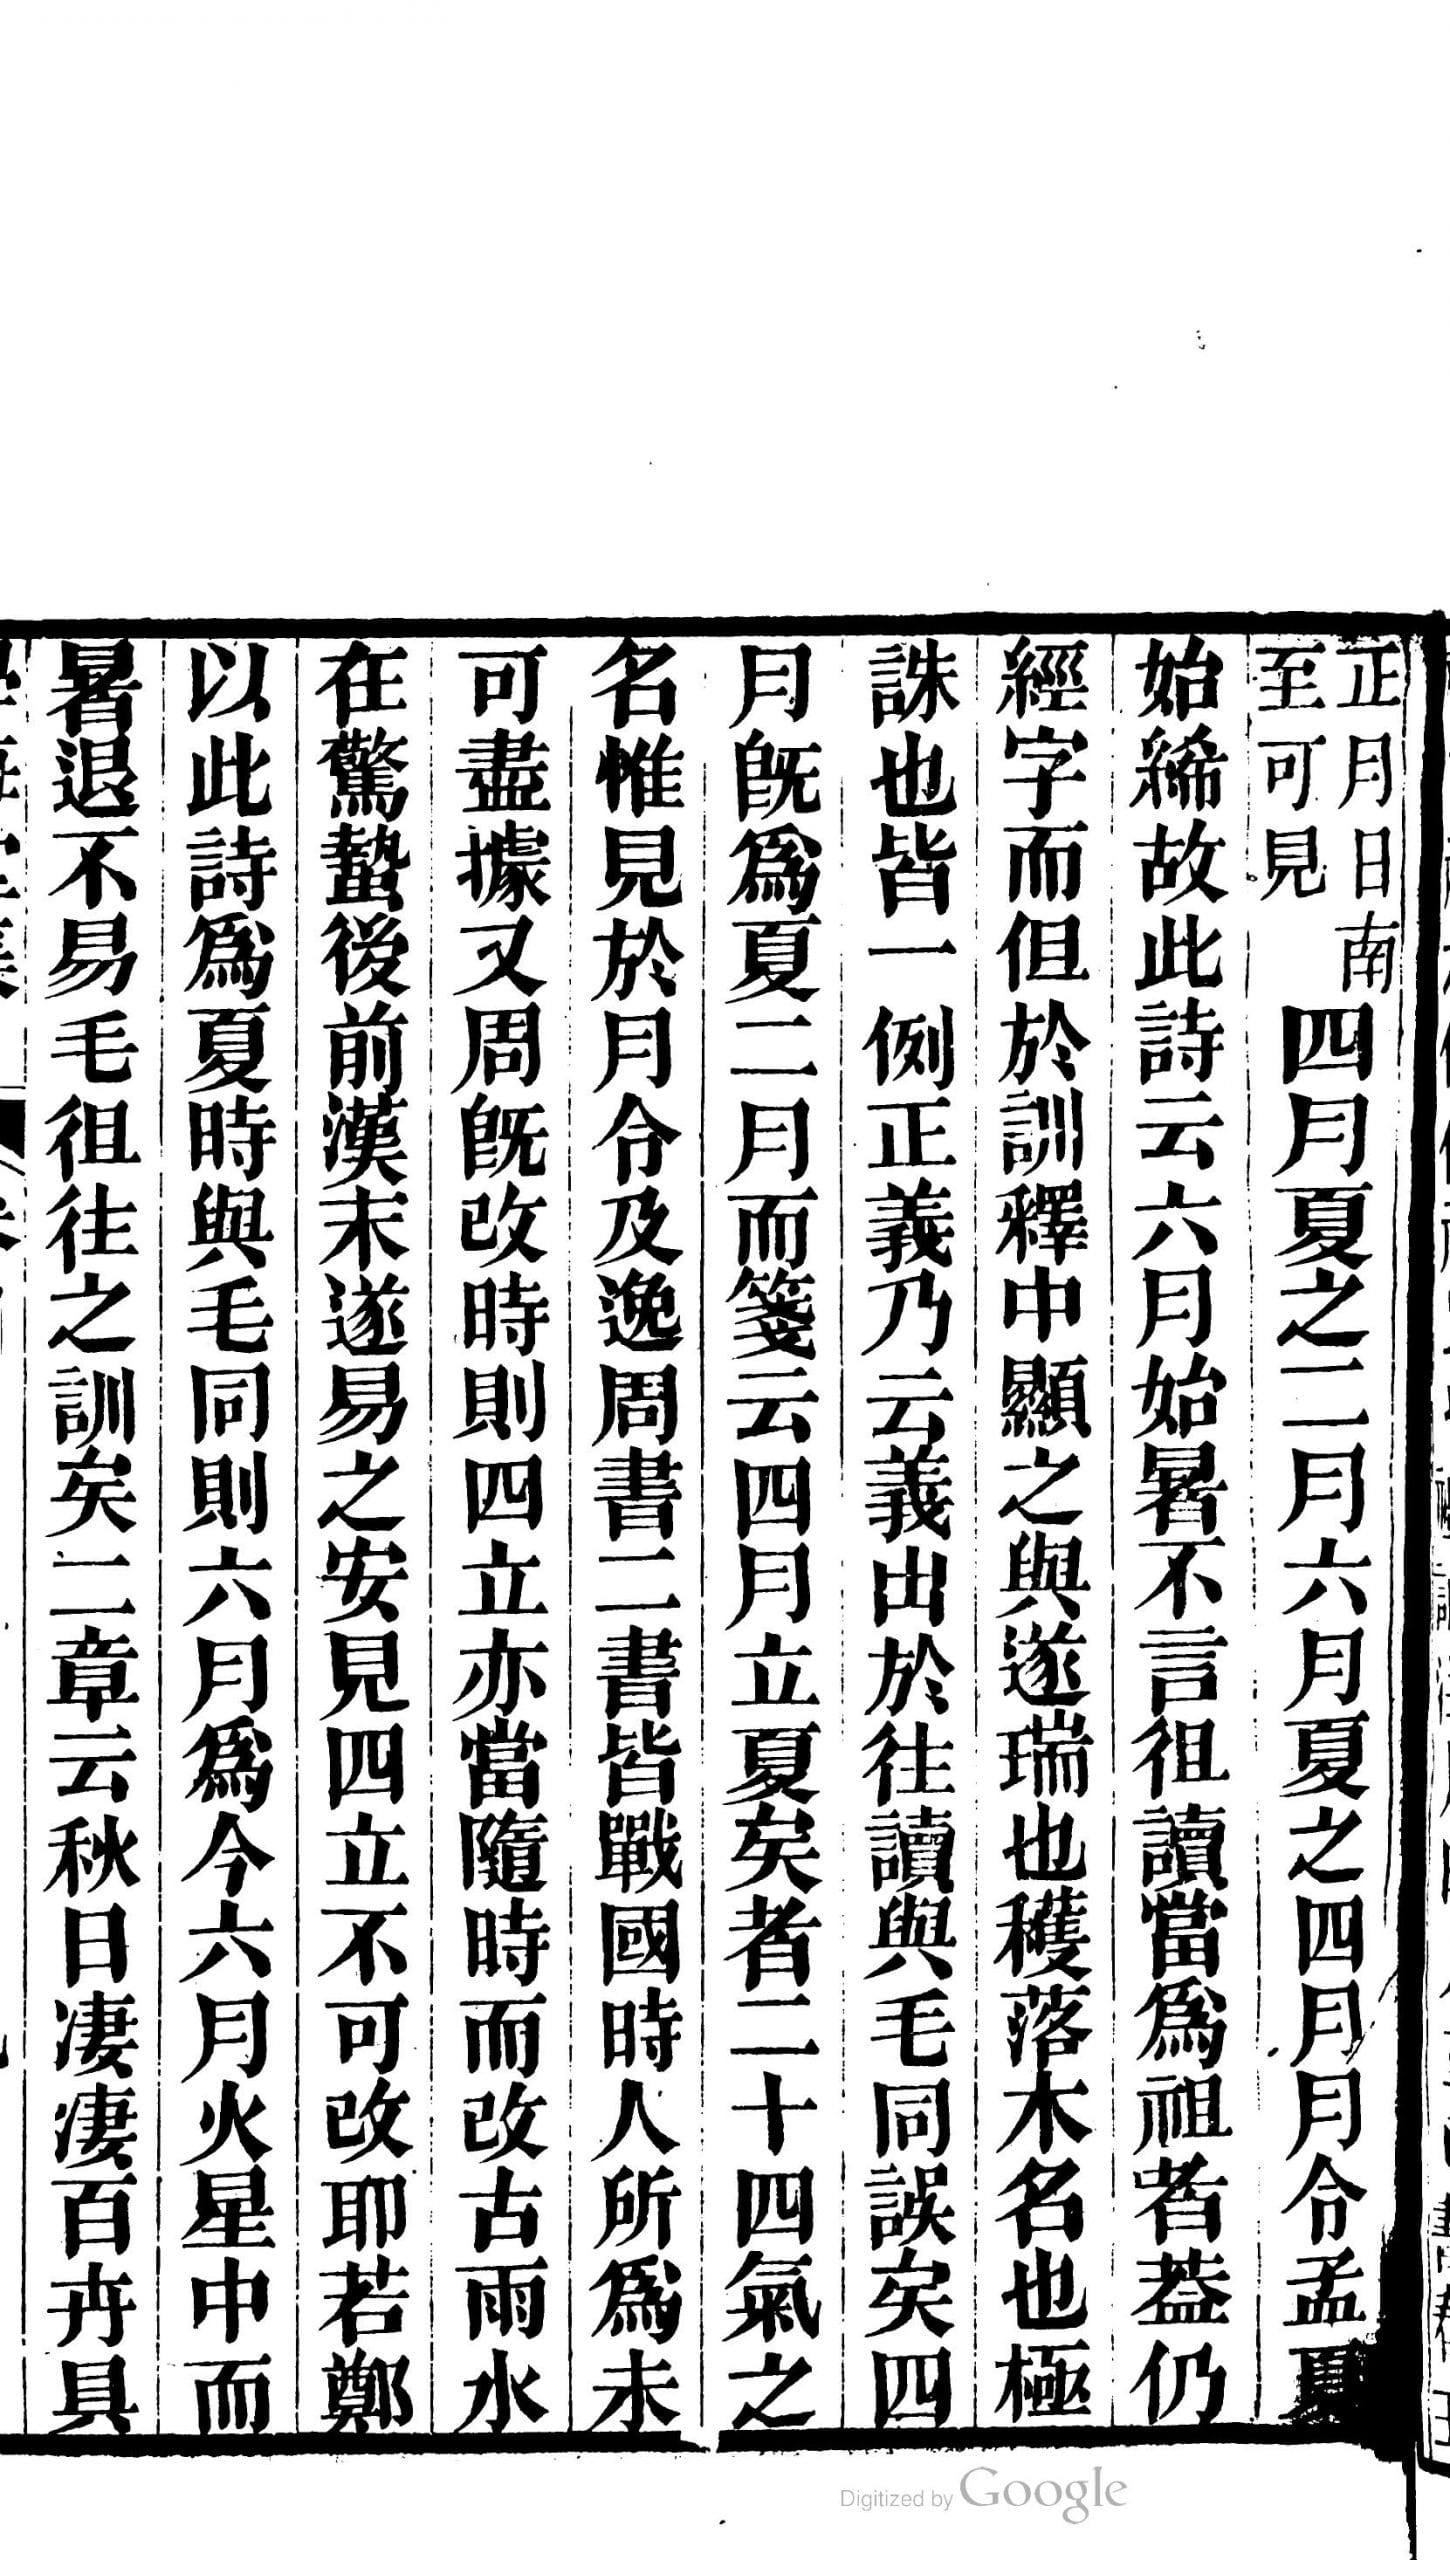 正月日南至可見四月夏之二月六月夏之四月月令孟夏
始絺故此詩云六月始暑不言徂讀當爲祖者葢仍
經字而但於訓釋中顯之與遂瑞也穫落木名也極
誅也皆一例正義乃云義出於往讀與毛同誤矣四
月旣爲夏二月而箋云四月立夏矣者二十四氣之
名惟見於月令及逸周書二書皆戰國時人所爲未
可盡據又周旣改時則四立亦當隨時而改古雨水
在驚蟄後前漢末遂易之安見四立不可改耶若鄭
以此詩爲夏時與毛同則六月爲今六月火星中而
暑退不易毛徂往之訓矣二章云秋日凄凄百卉具
Digitized by Google